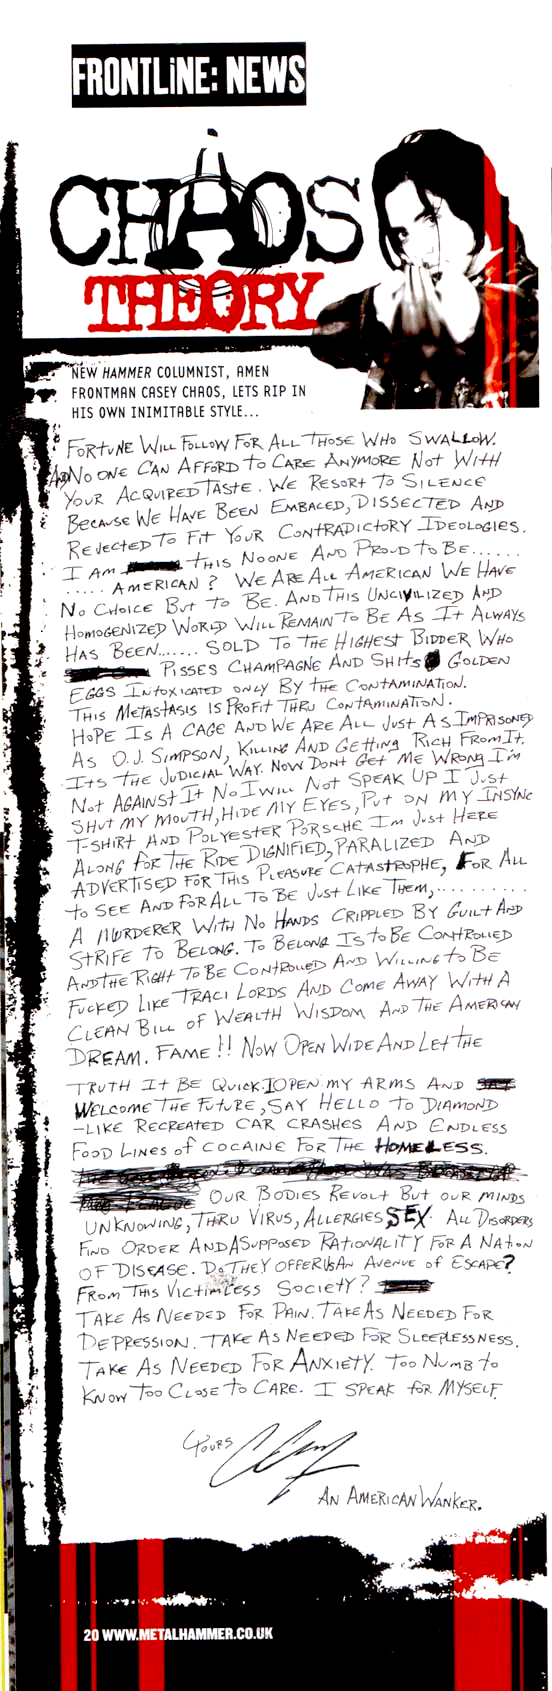 FRONTLiNE: NEWS
CHAOS
THEORY
NEW HAMMER COLUMNIST, AMEN
FRONTMAN CASEY CHAOS, LETS RIP IN
HIS OWN INIMITABLE STYLE...
FORTUNE WILL FOLLOW FOR ALL THOSE WHO SWALLOW.
AND NO ONE CAN AFFORD TO CARE ANYMORE NOT WITH
YOUR ACQUIRED TASTE. WE RESORT TO SILENCE
BECAUSE WE HAVE BEEN EMBACED, DISSECTED AND
REJECTED TO FIT YOUR CONTRADICTORY IDEOLOGIES.
I AM THIS NOONE AND PROUD TO BE......
..... AMERICAN? WE ARE ALL AMERICAN WE HAVE
NO CHOICE BUT TO BE. AND THIS UNCIVILIZED AND
HOMOGENIZED WORLD WILL REMAIN TO BE AS IT ALWAYS
HAS BEEN...... SOLD TO THE HIGHEST BIDDER WHO
PISSES CHAMPAGNE AND SHITS GOLDEN
EGGS INTOXICATED ONLY BY THE CONTAMINATION.
THIS METASTASIS IS PROFIT THRU CONTAMINATION.
HOPE IS A CAGE AND WE ARE ALL JUST AS IMPRISONED
AS O.J. SIMPSON, KILLING AND GETTING RICH FROM IT.
ITS THE JUDICIAL WAY. NOW DONT GET ME WRONG I'M
NOT AGAINST IT NO I WILL NOT SPEAK UP I JUST
SHUT MY MOUTH, HIDE MY EYES, PUT ON MY INSYNC
T-SHIRT AND POLYESTER PORSCHE IM JUST HERE
ALONG FOR THE RIDE DIGNIFIED, PARALIZED AND
ADVERTISED FOR THIS PLEASURE CATASTROPHE, FOR ALL
TO SEE AND FOR ALL TO BE JUST LIKE THEM,..........
A MURDERER WITH NO HANDS CRIPPLED BY GUILT AND
STRIFE TO BELONG. TO BELONG IS TO BE CONTROLLED
AND THE RIGHT TO BE CONTROLLED AND WILLING TO BE
FUCKED LIKE TRACI LORDS AND COME AWAY WITH A
CLEAN BILL OF WEALTH WISDOM AND THE AMERICAN
DREAM. FAME!! NOW OPEN WIDE AND LET THE
TRUTH IT BE QUICK. I OPEN MY ARMS AND
WELCOME THE FUTURE, SAY HELLO TO DIAMOND
-LIKE RECREATED CAR CRASHES AND ENDLESS
FOOD LINES OF COCAINE FOR THE HOMELESS.
OUR BODIES REVOLT BUT OUR MINDS
UNKNOWING, THRU VIRUS, ALLERGIES SEX. ALL DISORDERS
FIND ORDER AND A SUPPOSED RATIONALITY FOR A NATION
OF DISEASE. DO THEY OFFER US AN AVENUE OF ESCAPE?
FROM THIS VICTIMLESS SOCIETY?
TAKE AS NEEDED FOR PAIN. TAKE AS NEEDED FOR
DEPRESSION. TAKE AS NEEDED FOR SLEEPLESSNESS.
TAKE AS NEEDED FOR ANXIETY. TOO NUMB TO
KNOW TOO CLOSE TO CARE. I SPEAK FOR MYSELF.
YOURS
AN AMERICAN WANKER.
20 WWW.METALHAMMER.CO.UK